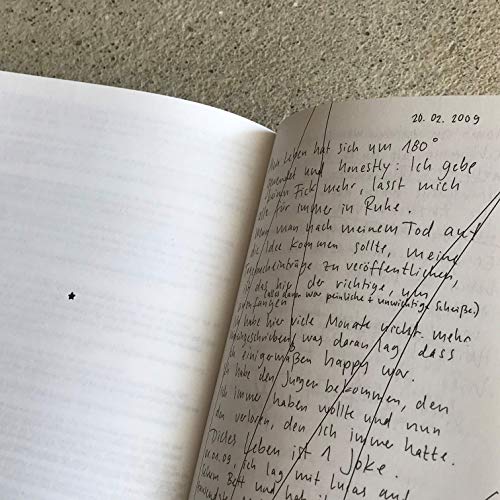 20.02.2009
Mein Leben hat sich um 180°
gewendet und honestly: Ich gebe
keinen Fick mehr, lasst mich
für immer in Ruhe.
man nach meinem Tod auf
die Idee kommen sollte, meine
Tagebucheinträge zu veröffentlichen,
ist das hier der richtige, um
anzufangen (alles davor war peinliche + unwichtige Scheiße.)
Ich habe hier viele Monate nichts mehr
was daran lag, dass
ich einigermaßen happy war.
Ich habe den Jungen bekommen, den
ich immer haben wollte und nun
den verloren, den ich immer hatte.
Dieses Leben ist 1 Joke.
.01.09, ich lag mit Lukas auf
Bett und